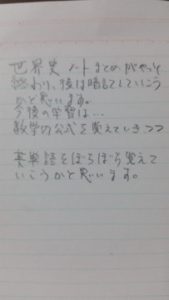 世界史ノートまとめがやっと
終わり、後は暗記していこう
かと思います。
今後の学習は…
数学の公式を覚えていきつつ
英単語をぼちぼち覚えて
いこうかと思います。